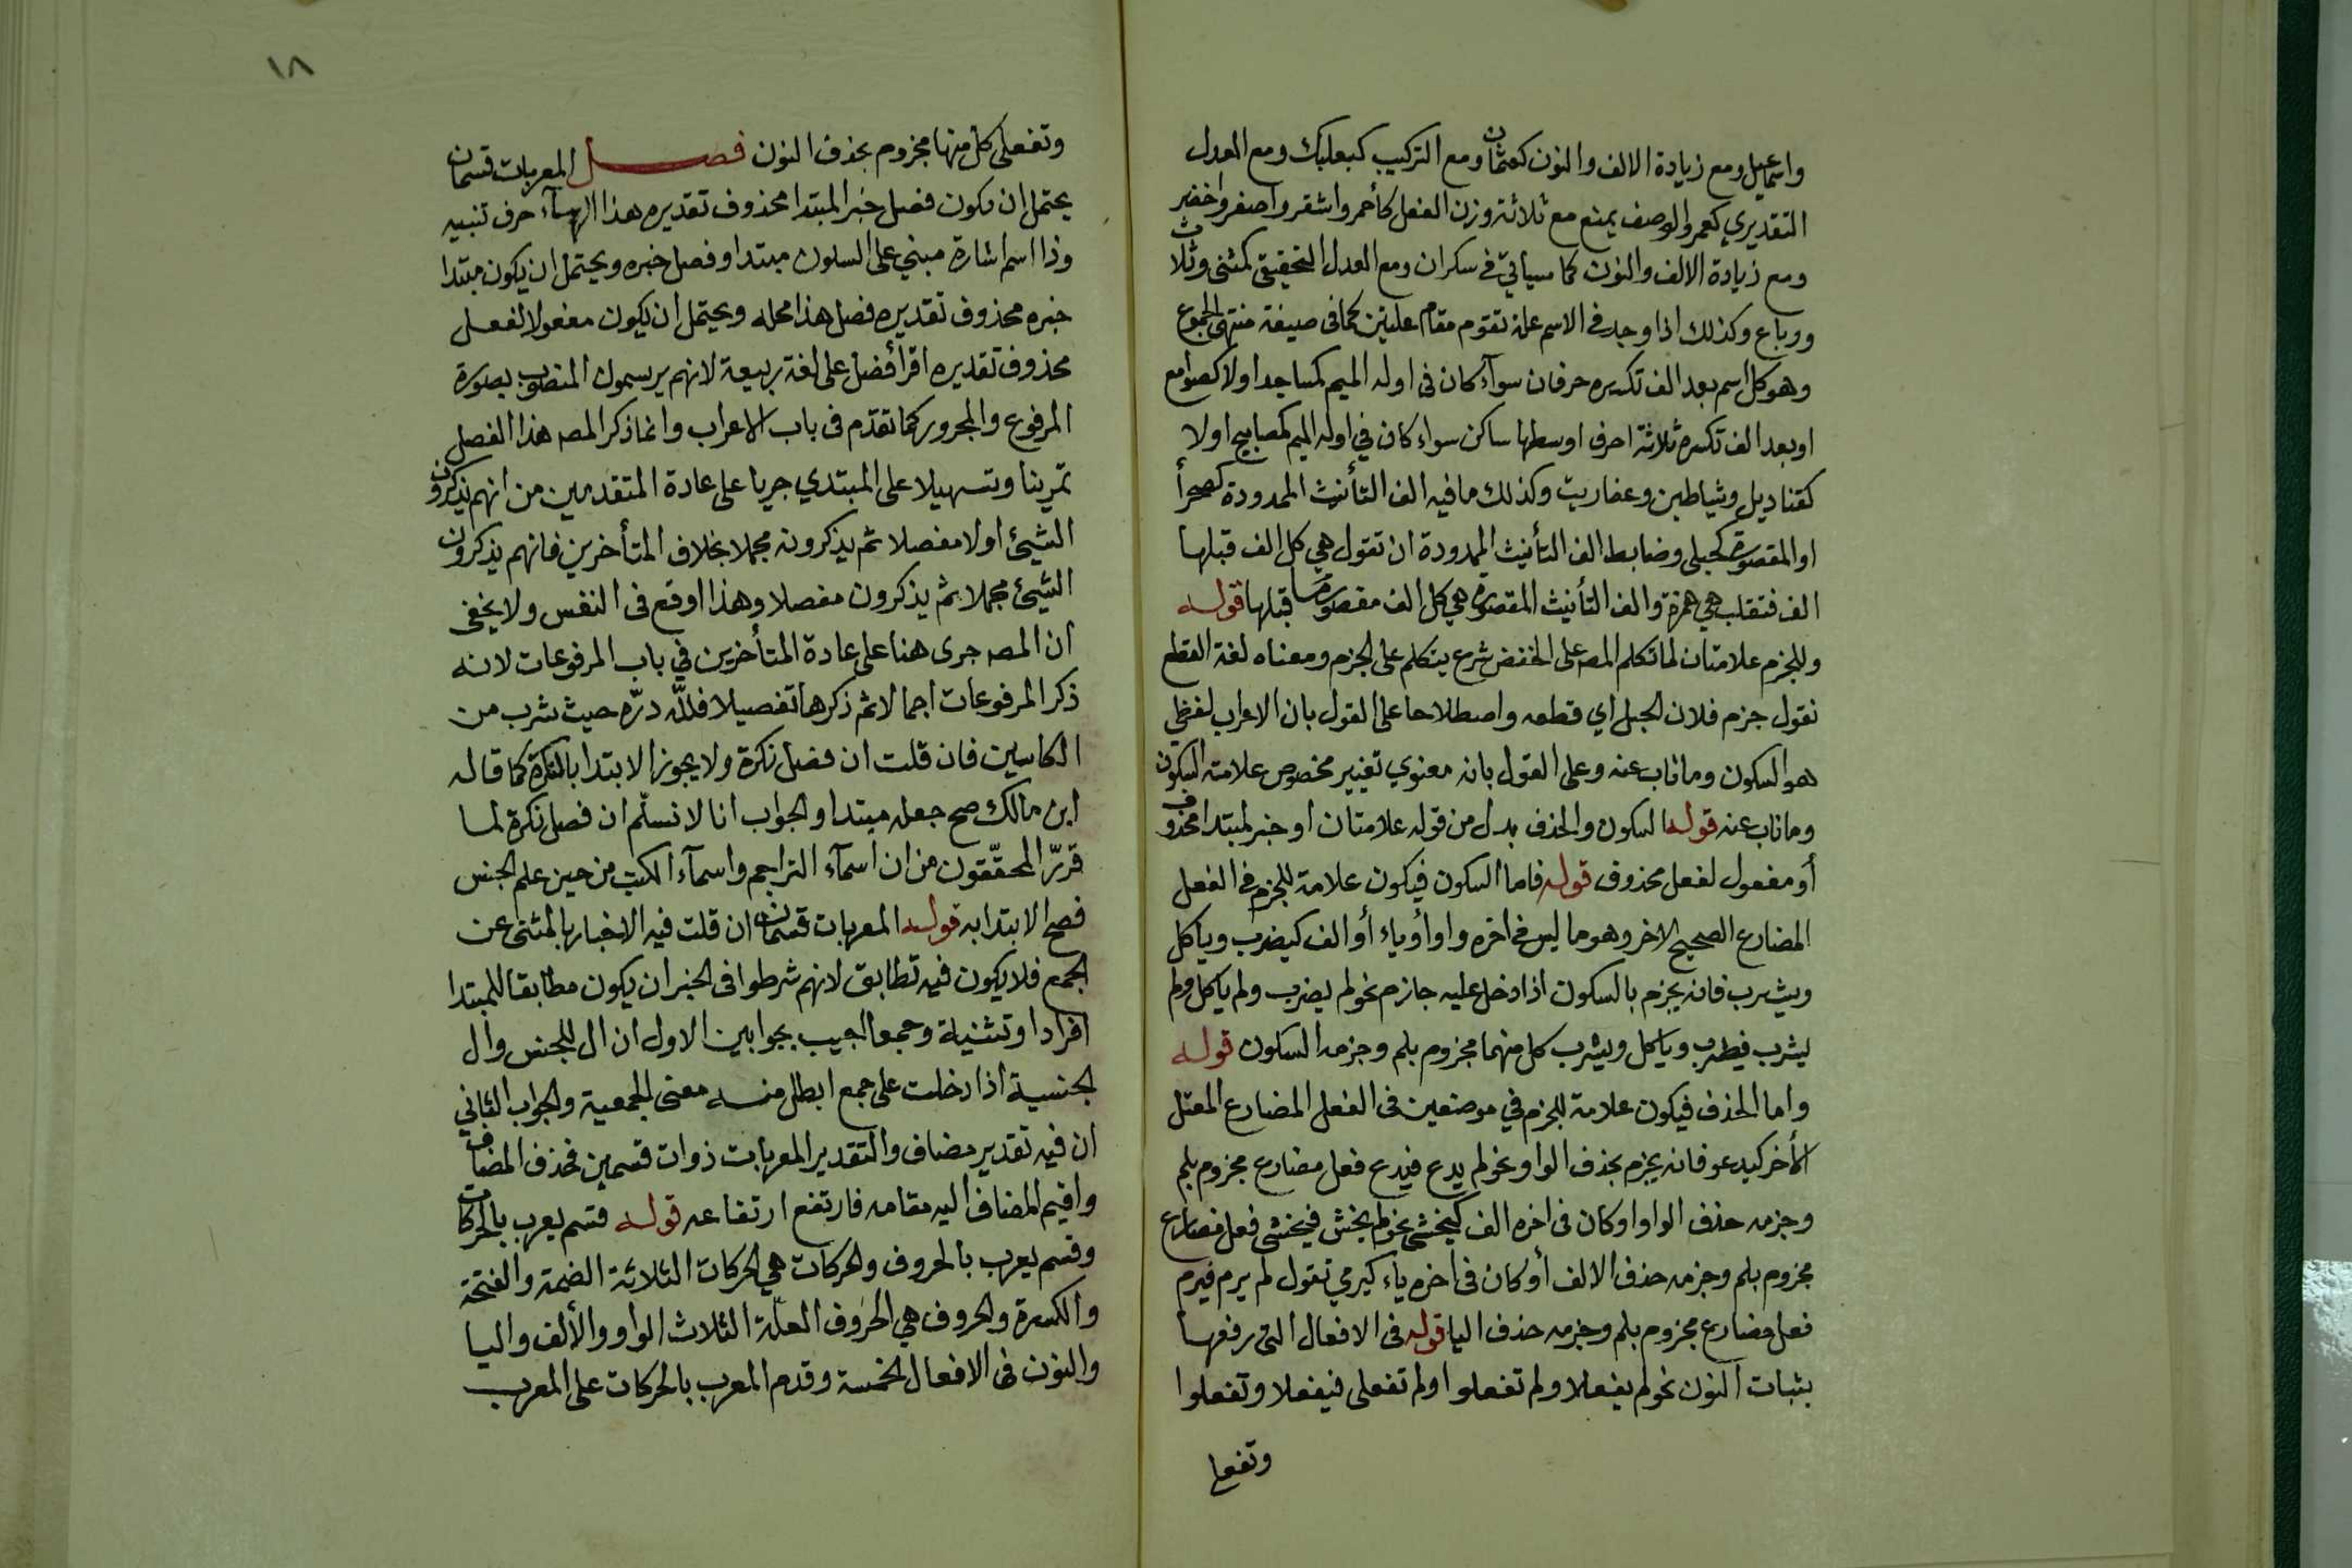 واسماعيل ومع زيادة الالف والنون كعثمان ومع التركيب كبعلبك ومع العدل
التقديري كعمر والوصف يمنع مع ثلاثة وزن الفعل كأحمر واشقر واصفر واخضر
ومع زيادة الالف والنون كما سياتي في سكران ومع العدل التحقيقي كمثنى وثلاث
ورباع وكذلك اذا وجد في الاسم علة تقوم مقام علتين كما في صيغة منتهى الجموع
وهو كل اسم بعد الف تكسيره حرفان سوآء كان في اوله الميم كمساجد اولا كصوامع
او بعد الف تكسيره ثلاثة احرف اوسطها ساكن سواء كان في اوله الميم كمصابيح اولا
كقناديل وشياطين وعفاريت وكذلك ما فيه الف التأنيث الممدودة كصحرأ
او المقصورة كحبلى وضابط الف التأنيث الممدودة ان تقول هي كل الف قبلها
الف فتقلب هي همزة والف التأنيث المقصورة هي كل الف مقصورة قبلها قوله
وللجزم علامتان لما تكلم المصـ على الخفض شرع يتكلم على الجزم ومعناه لغة القطع
نقول جزم فلان الحبل اي قطعه واصطلاحا على القول بان الاعراب لفظي
هو السكون وما ناب عنه وعلى القول بانه معنوي تغيير مخصوص علامته السكون
وما ناب عنه قوله السكون والحذف بدل من قوله علامتان او خبر لمبتدا محذوف
أو مفعول لفعل محذوف قوله فاما السكون فيكون علامة للجزم في الفعل
المضارع الصحيح الاخر وهو ما ليس في اخره واو أو ياء أو الف كيضرب ويأكل
ويشرب فانه يجزم بالسكون اذا دخل عليه جازم نحو لم يضرب ولم يأكل ولم
يشرب فيضرب ويأكل ويشرب كل منهما مجزوم بلم وجزمه السكون قوله
واما الحذف فيكون علامة للجزم في موضعين في الفعل المضارع المعتل
الأخر كيدعو فانه يجزم بحذف الواو نحو لم يدع فيدع فعل مضارع مجزوم بلم
وجزمه حذف الواو او كان في اخره الف كيخشى نحو لم يخش فيخشى فعل مضارع
مجزوم بلم وجزمه حذف الالف أو كان في اخره ياء كيرمي تقول لم يرم فيرم
فعل مضارع مجزوم بلم وجزمه حذف اليا قوله في الافعال التي رفعها
بثبات النون نحو لم يفعلا ولم تفعلوا ولم تفعلى فيفعلا وتفعلوا
وتفعلى
١٨
وتفعلى كل منها مجزوم بحذف النون فصل المعربات قسمان
يحتمل ان يكون فصل خبر المبتدا محذوف تقديره هذا الهآء حرف تنبيه
وذا اسم اشارة مبني على السكون مبتدا وفصل خبره ويحتمل ان يكون مبتدا
خبره محذوف تقديره فصل هذا محله ويحتمل ان يكون مفعولا لفعل
محذوف تقديره اقرأ فصل على لغة ربيعة لانهم يرسمون المنصوب بصورة
المرفوع والمجرور كما تقدّم في باب الاعراب وانما ذكر المصـ هذا الفصل
تمرينا وتسهيلا على المبتدي جريا على عادة المتقدمين من انهم يذكرون
الشيئ اولا مفصلا ثم يذكرونه مجملا بخلاف المتأخرين فانهم يذكرون
الشيئ مجملا ثم يذكرون مفصلا وهذا اوقع في النفس ولا يخفى
ان المصـ جرى هنا على عادة المتأخرين في باب المرفوعات لانه
ذكر المرفوعات اجمالا ثم ذكرها تفصيلا فللّه درّه حيث شرب من
الكاسين فان قلت ان فصل نكرة ولا يجوز الابتدا بالنكرة كما قاله
ابن مالك صح جعله مبتدا والجواب انا لا نسلّم ان فصل نكرة لما
قررّ المحقّقون من ان اسمآء التراجم واسمآء الكتب من حين علم الجنس
فصح الابتدا به قوله المعربات قسمان ان قلت فيه الاخبار بالمثنى عن
الجمع فلا يكون فيه تطابق لانهم شرطوا في الخبر ان يكون مطابقا للمبتدا
افرادا وتثنية وجمعا اجيب بجوابين الاول ان ال للجنس وال
الجنسية اذا دخلت على جمع ابطل منه معنى الجمعية والجواب الثاني
ان فيه تقدير مضاف والتقدير المعربات ذوات قسمين فحذف المضاف
واقيم المضاف اليه مقامه فارتفع ارتفاعه قوله قسم يعرب بالحركات
وقسم يعرب بالحروف والحركات هي الحركات الثلاثة الضمة والفتحة
والكسرة والحروف هي الحروف العلّة الثلاث الواو والألف واليا
والنون في الافعال الخمسة وقدم المعرب بالحركات على المعرب